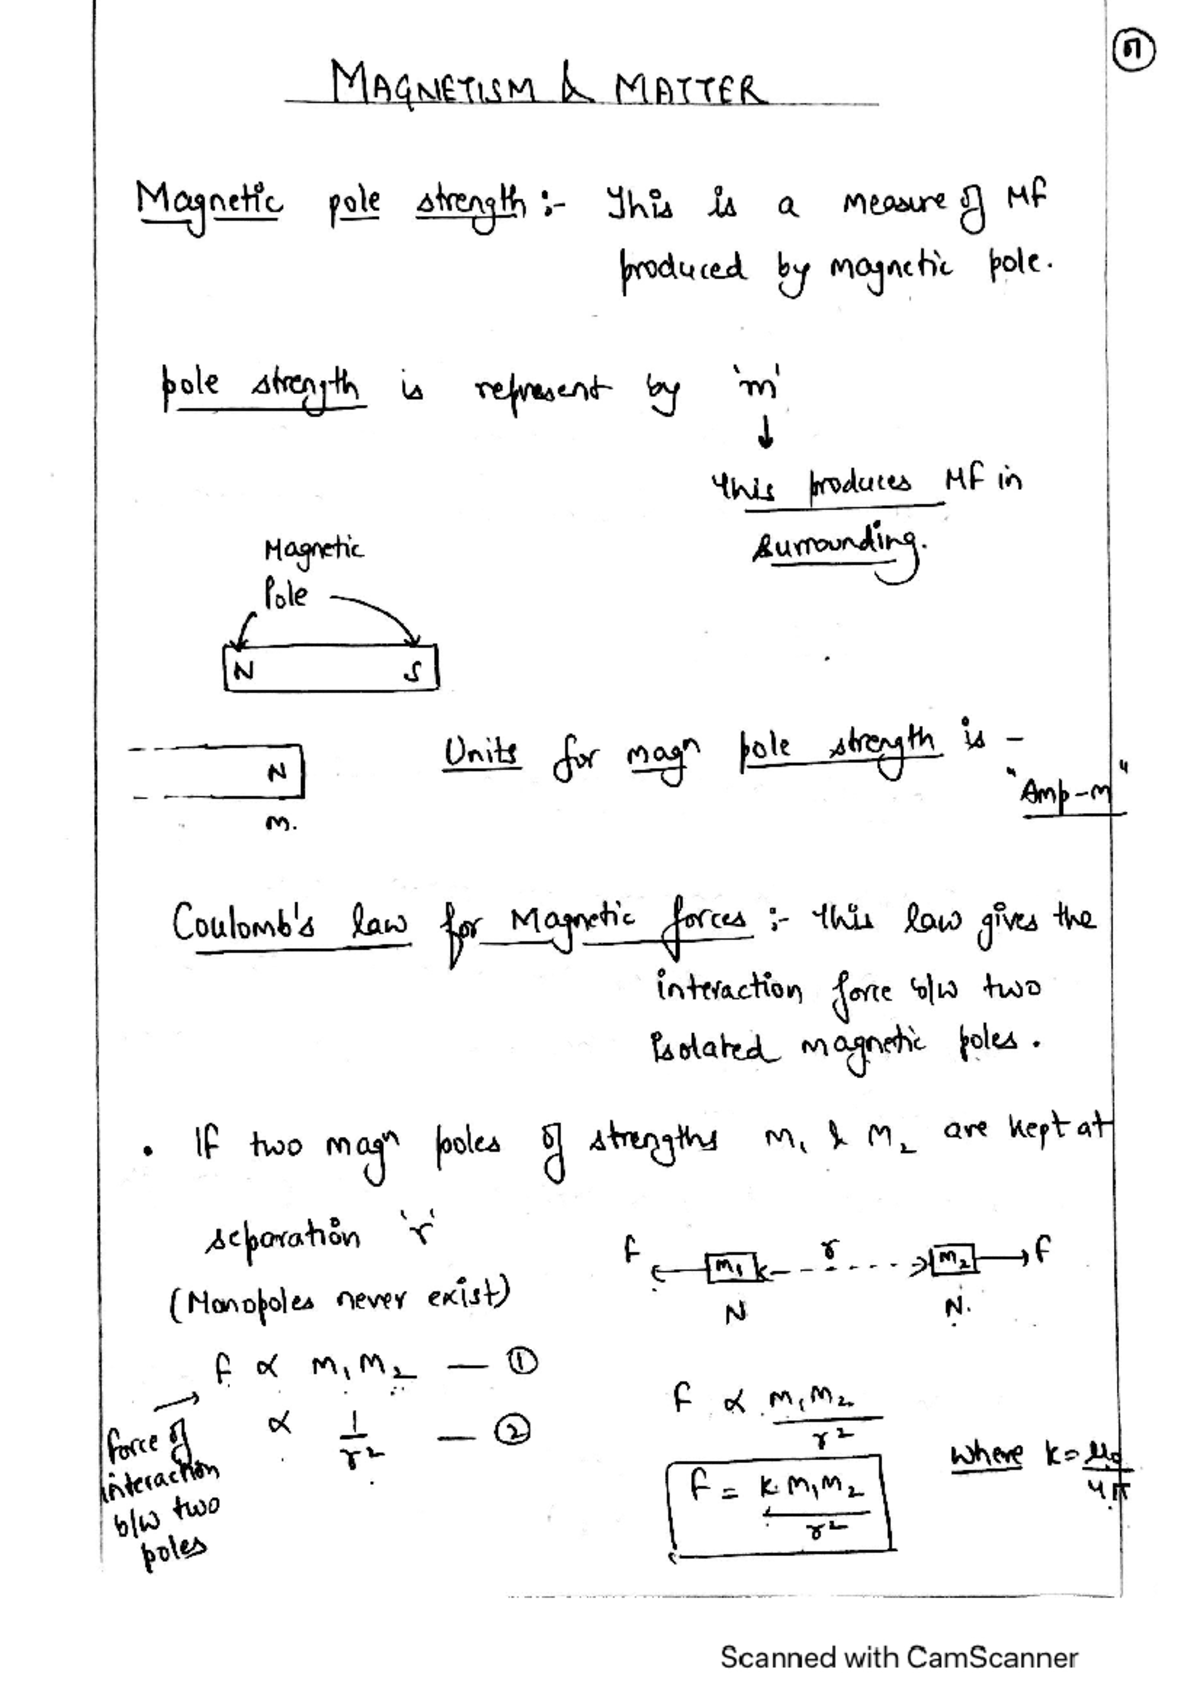 MAGNETISM & MATTER
Magnetic pole strength :- This is a measure of MF
produced by magnetic pole.
pole strength is represent by 'm'
↓
This produces MF in
surrounding.
Magnetic
Pole
N S
N
m.
Units for magn pole strength is -
"Amp-m"
Coulomb's law for Magnetic forces :- This law gives the
interaction force b/w two
isolated magnetic poles.
• If two magn poles of strengths m₁ & m₂ are kept at
separation 'r'
(Monopoles never exist)
F m₁ r m₂ F
N N.
F ∝ m₁m₂ — ①
∝ 1/r² — ②
force of
interaction
b/w two
poles
F ∝ m₁m₂/r²
F = k m₁m₂/r²
where k = μ₀/4π
Scanned with CamScanner